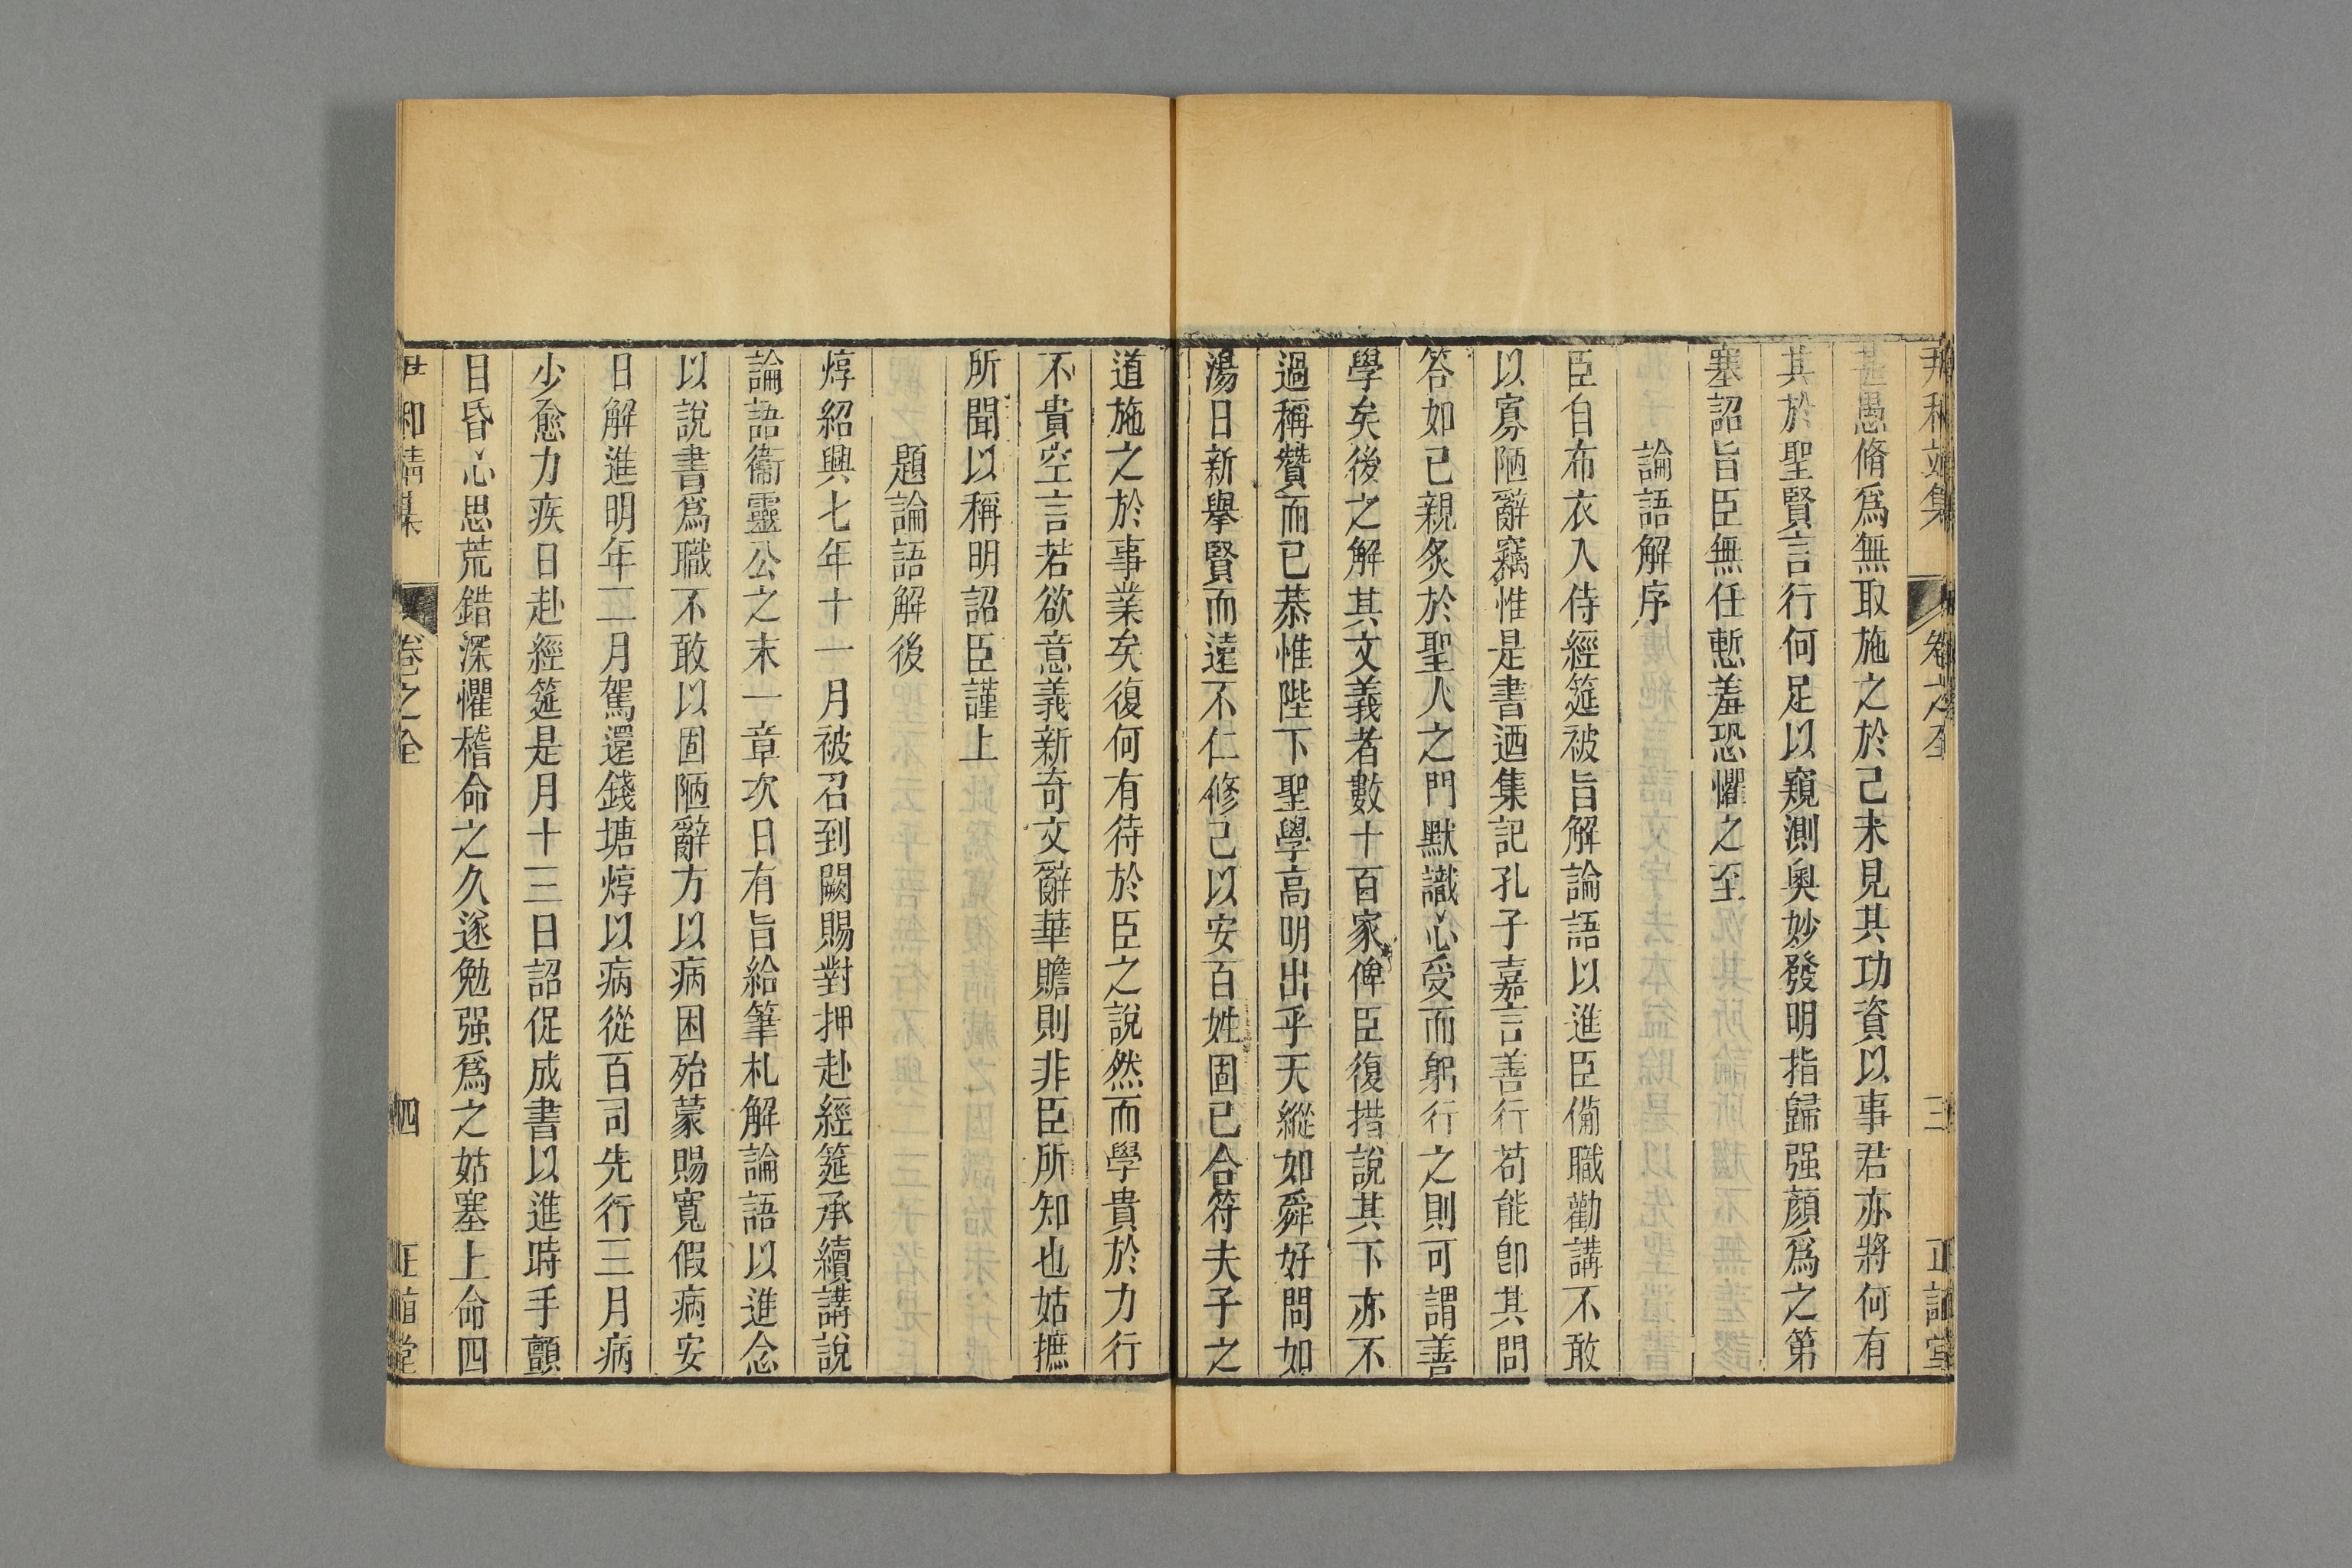 尹和靖集 卷之全 三 正誼堂
甚愚脩爲無取施之於己未見其功資以事君亦將何有
其於聖賢言行何足以窺測奥妙發明指歸强顏爲之第
塞詔旨臣無任慙羞恐懼之至
論語解序
臣自布衣入侍經筵被旨解論語以進臣備職勸講不敢
以寡陋辭竊惟是書迺集記孔子嘉言善行苟能卽其問
答如已親炙於聖人之門默識心受而躬行之則可謂善
學矣後之解其文義者數十百家俾臣復措說其下亦不
過稱贊而已恭惟陛下聖學高明出乎天縱如舜好問如
湯日新舉賢而遠不仁修己以安百姓固已合符夫子之
道施之於事業矣復何有待於臣之說然而學貴於力行
不貴空言若欲意義新奇文辭華贍則非臣所知也姑摭
所聞以稱明詔臣謹上
題論語解後
焞紹興七年十一月被召到闕賜對押赴經筵承續講說
論語衞靈公之末一章次日有旨給筆札解論語以進念
以說書爲職不敢以固陋辭方以病困殆蒙賜寬假病安
日解進明年二月駕還錢塘焞以病從百司先行三月病
少愈力疾日赴經筵是月十三日詔促成書以進時手顫
目昏心思荒錯深懼稽命之久遂勉强爲之姑塞上命四
尹和靖集 卷之全 四 正誼堂